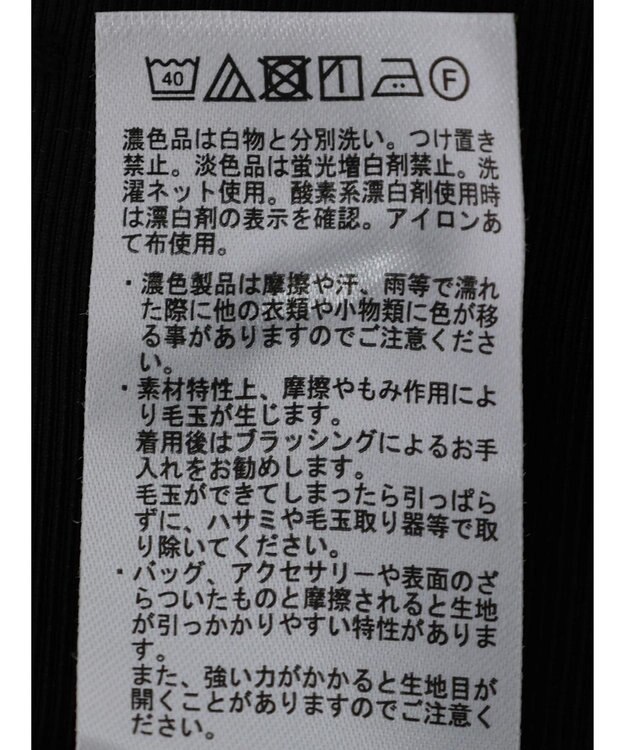 40
F
濃色品は白物と分別洗い。つけ置き
禁止。淡色品は蛍光増白剤禁止。洗
濯ネット使用。酸素系漂白剤使用時
は漂白剤の表示を確認。アイロンあ
て布使用。
・濃色製品は摩擦や汗、雨等で濡れ
た際に他の衣類や小物類に色が移
る事がありますのでご注意くださ
い。
・素材特性上、摩擦やもみ作用によ
り毛玉が生じます。
着用後はブラッシングによるお手
入れをお勧めします。
毛玉ができてしまったら引っぱら
ずに、ハサミや毛玉取り器等で取
り除いてください。
・バッグ、アクセサリーや表面のざ
らついたものと摩擦されると生地
が引っかかりやすい特性がありま
す。
また、強い力がかかると生地目が
開くことがありますのでご注意く
ださい。